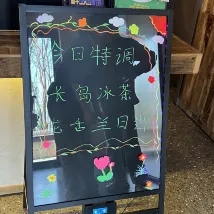 今日特调
长岛冰茶
龙舌兰日